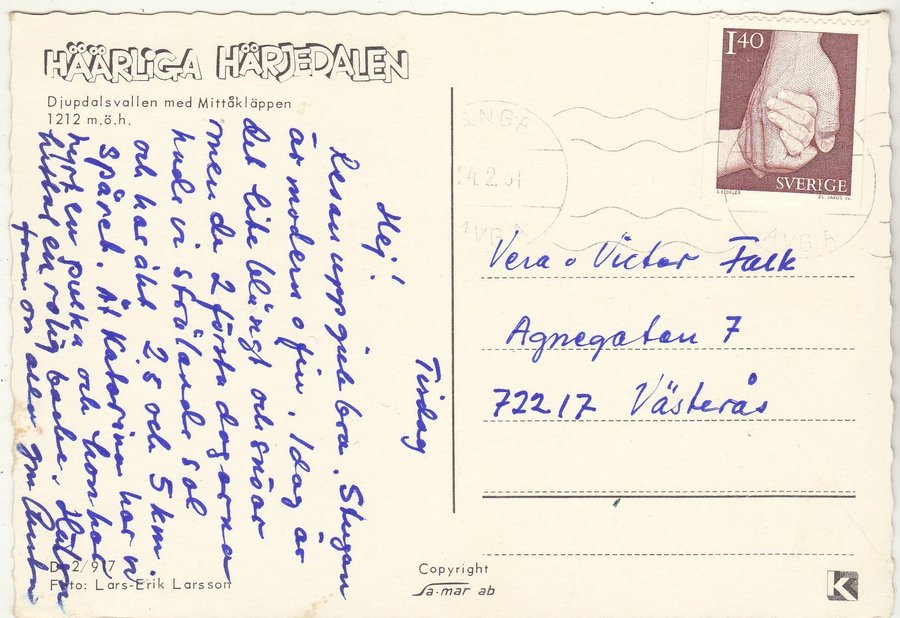 HÄÄRLIGA HÄRJEDALEN
Djupdalsvallen med Mittåkläppen
1212 m.ö.h.
Tisdag
Hej!
Resan upp gick bra. Stugan
är modern o fin. Idag är
det lite blåsigt och snöar
men de 2 första dagarna
hade vi strålande sol
och har åkt 2 5 och 5 km
spåret. Åt Katarina har vi
hyrt en pulka och hon har
hittat en rolig backe. Hälsn
från oss alla gm
Foto: Lars-Erik Larsson
Copyright
Sa-mar ab
ÅNGE
24.2.81
AVGA
1 40
SVERIGE
AVGA
Vera o Victor Falk
Agnegatan 7
72217 Västerås
K